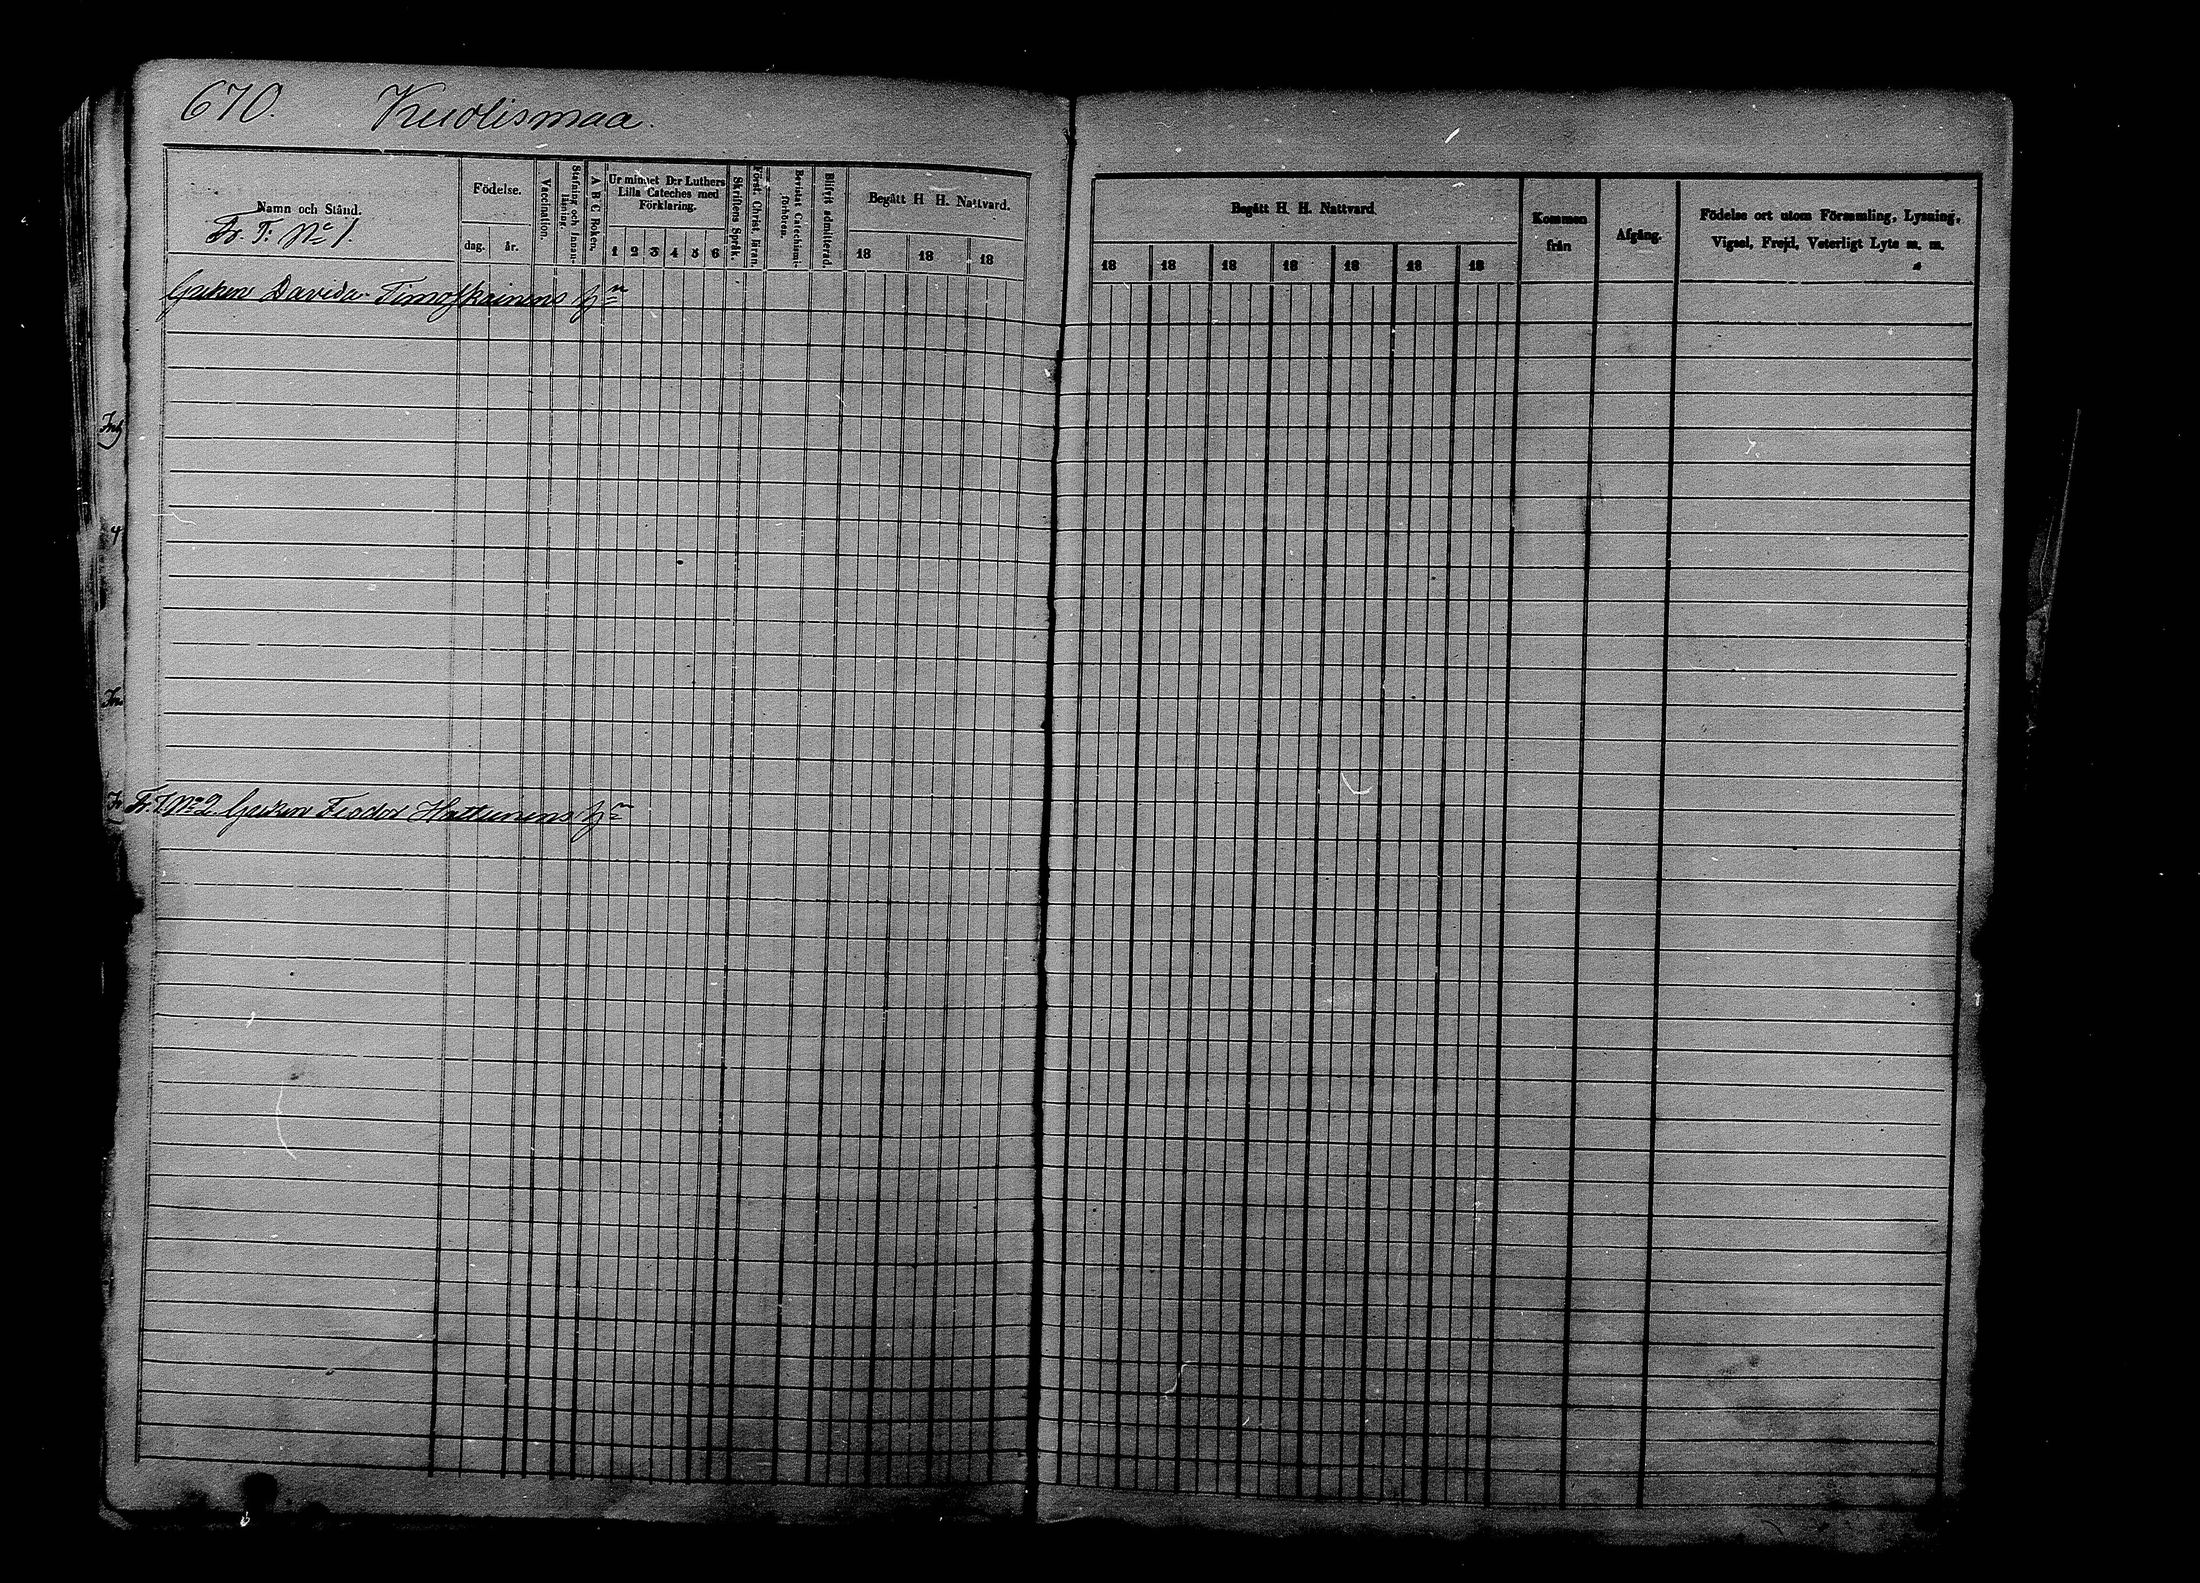 670. Kuolismaa.
Namn och Stånd.
Fr. T. No 1.
Födelse.
dag. år.
Vaccination.
Stafning och Innan-läsning.
A B C Boken.
Ur minnet D:r Luthers
Lilla Cateches med
Förklaring.
1 2 3 4 5 6
Skriftens Språk.
Först. Christ. läran.
Bevistat Catechismi-förhören.
Blifvit admitterad.
Begått H H. Nattvard.
18 18 18
Begått H. H. Nattvard.
18 18 18 18 18 18 18
Kommen
från
Afgång.
Födelse ort utom Församling, Lysning,
Vigsel, Frejd, Veterligt Lyte m. m.
Davida Timoskainens
Fr. T. No 2. Feodor Hattunens